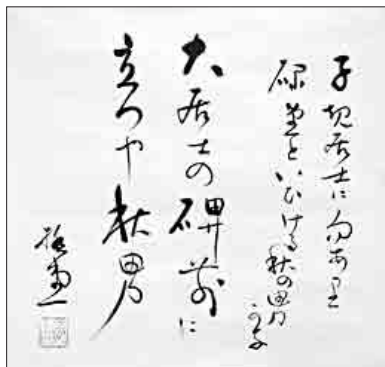 子規居士に句あり
碌堂といひける秋の男
かな
大居士の碑前に
立つや秋男
極堂